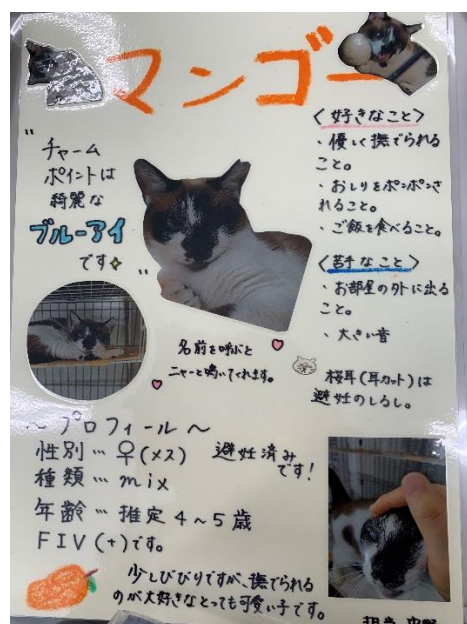 マンゴー
" チャーム
ポイントは
綺麗な
ブルーアイ
です "
〈好きなこと〉
・優しく撫でられる
こと。
・おしりをポンポンさ
れること。
・ご飯を食べること。
〈苦手なこと〉
・お部屋の外に出る
こと。
・大きい音
名前を呼ぶと
ニャーと鳴いてくれます。
桜耳(耳カット)は
避妊のしるし。
～プロフィール～
性別…♀(メス) 避妊済み
です!
種類…mix
年齢…推定4~5歳
FIV(+)です。
少しびびりですが、撫でられる
のが大好きなとっても可愛い子です。
担当